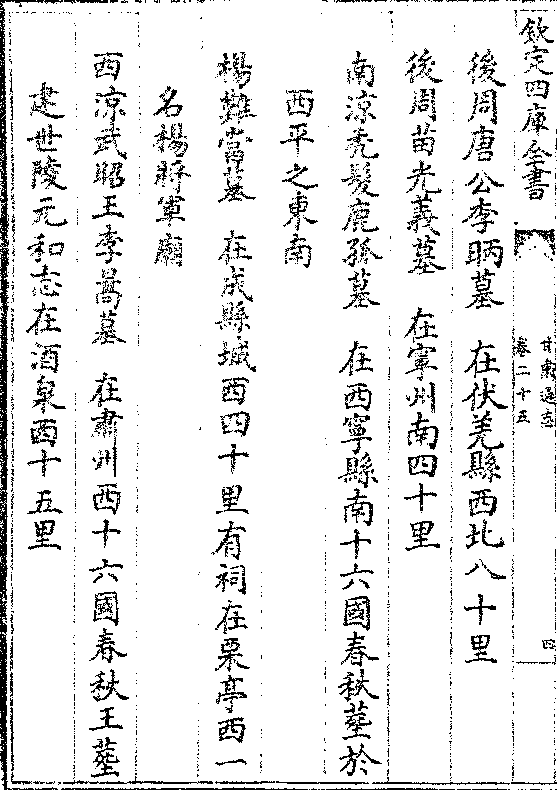 欽定四庫全書
甘肅通志
卷二十五
四
後周唐公李昞墓　在伏羌縣西北八十里
後周苗光義墓　在寧州南四十里
南涼禿髮鹿孤墓　在西寧縣南十六國春秋塟於
西平之東南
楊難當墓　在成縣城西四十里有祠在栗亭西一
名楊將軍廟
西涼武昭王李暠墓　在肅州西十六國春秋王塟
建世陵元和志在酒泉西十五里